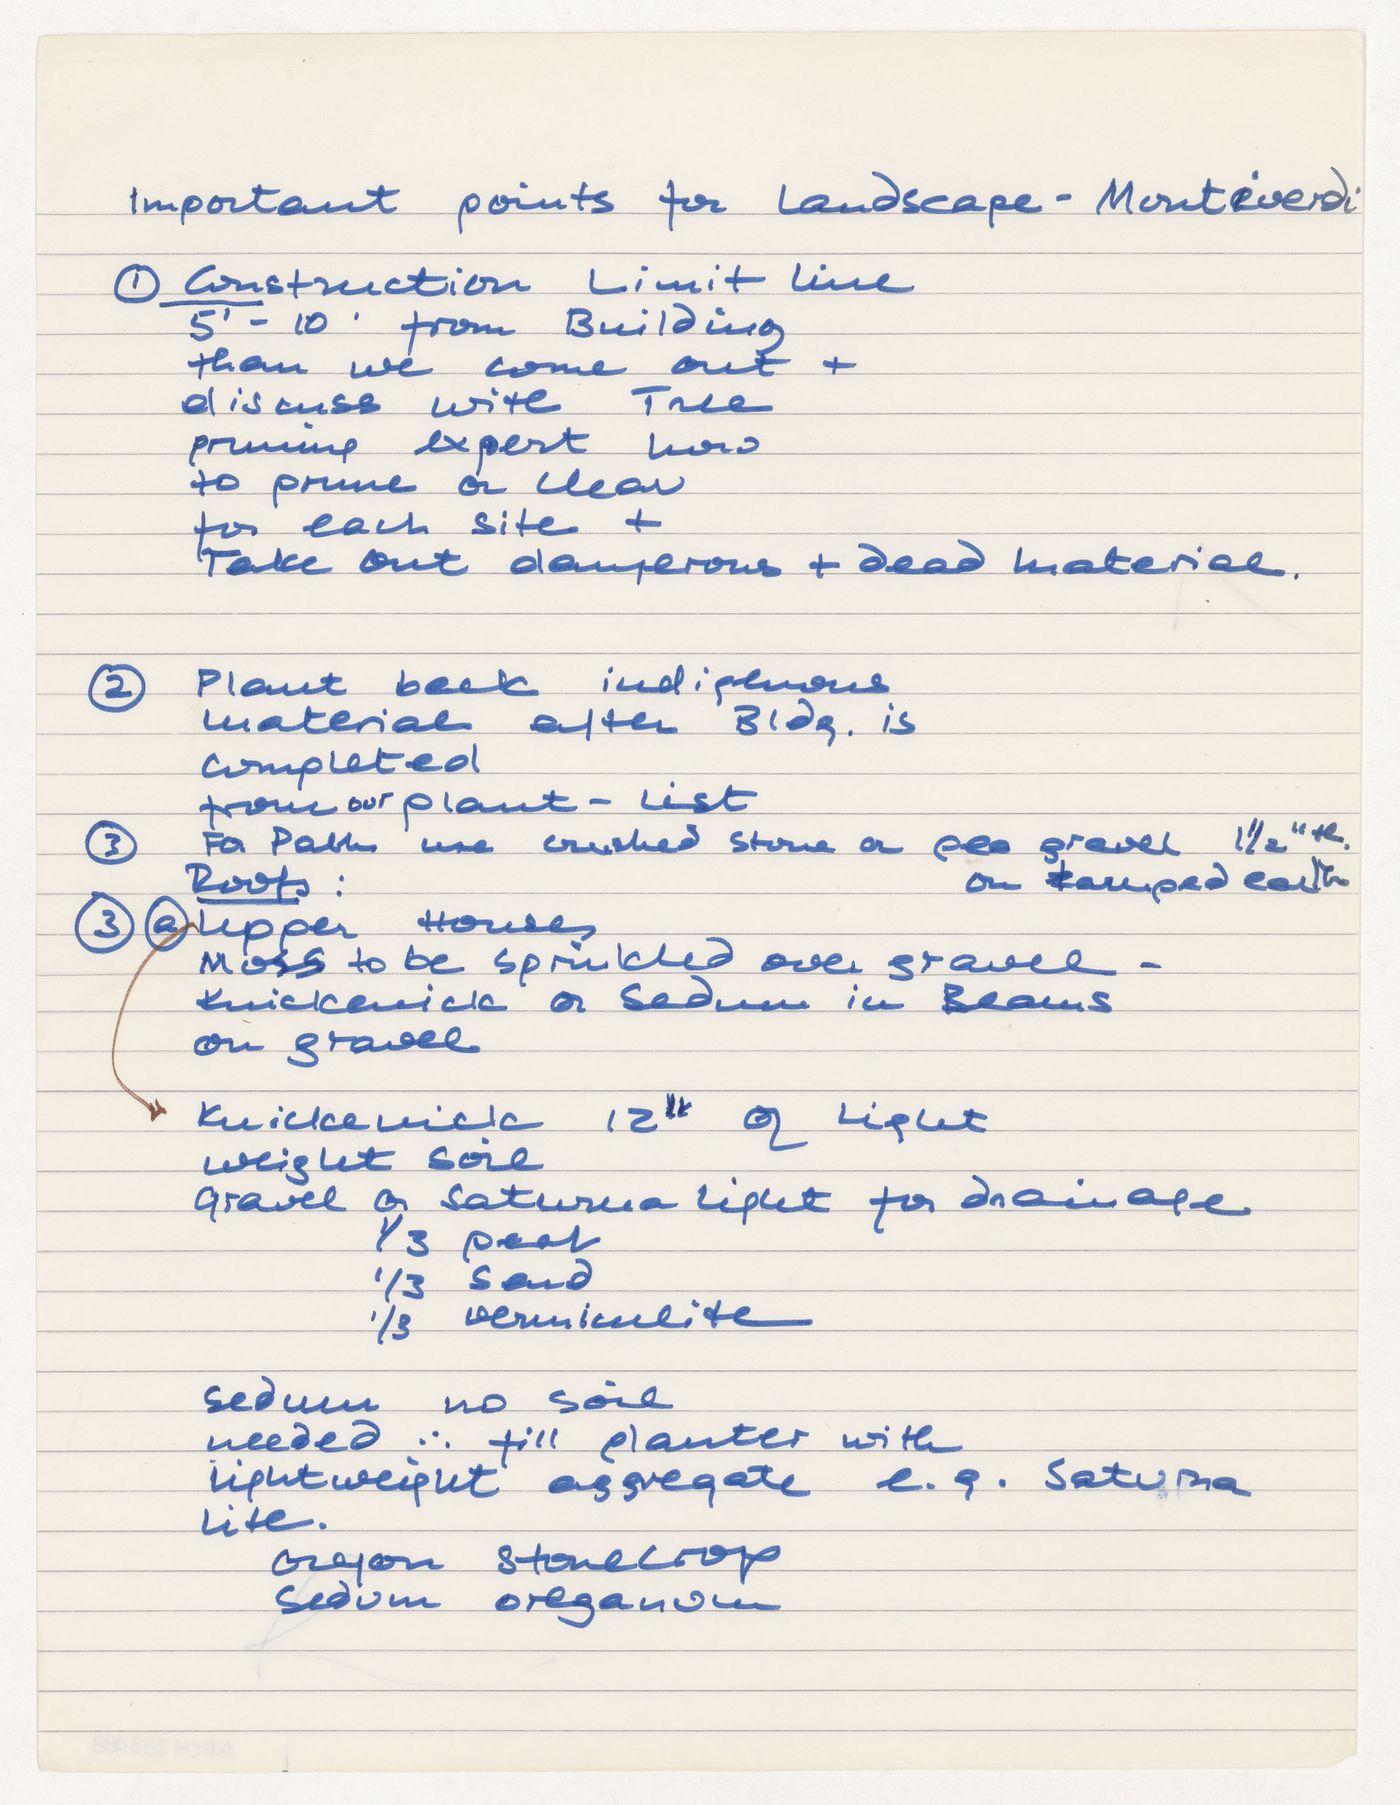 Important points for Landscape - Monteverdi
① Construction Limit line
5' - 10' from Building
than we come out +
discuss with Tree
pruning expert how
to prune or clear
for each site +
Take out dangerous + dead material.
② Plant back indigenous
material after Bldg. is
completed
from our plant - list
③ For Path use crushed stone or pea gravel 1 1/2" th.
on tamped earth
Roofs:
③ ⓐ Upper Houses
Moss to be sprinkled over gravel -
Knickenick or Sedum in Beams
on gravel
Knickenick 12" of Light
weight soil
Gravel or Saturna Light for drainage
1/3 peat
1/3 Sand
1/3 vermiculite
Sedum no soil
needed ∴ fill planter with
lightweight aggregate e.g. Saturna
Lite.
Oregon Stonecrop
Sedum oreganum
ARCH 283088